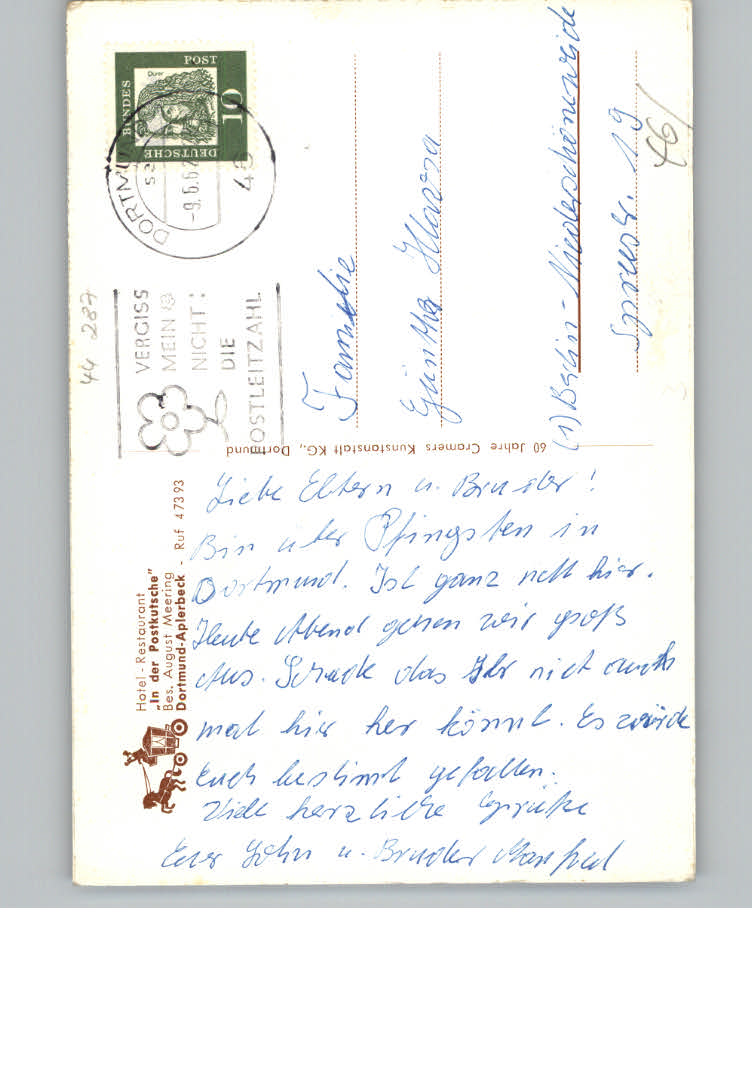 Hotel - Restaurant
„In der Postkutsche”
Bes. August Meering
Dortmund-Aplerbeck - Ruf 4 73 93
Liebe Eltern u. Bruder!
Bin über Pfingsten in
Dortmund. Ist ganz nett hier.
Heute Abend gehen wir groß
Aus. Schade das Ihr nicht auch
mal hier her könnt. Es würde
Euch bestimt gefallen.
Viele herzliche Grüße
Euer Sohn u. Bruder Manfred
60 Jahre Cramers Kunstanstalt KG., Dortmund
44 287
DEUTSCHE BUNDESPOST
Dürer
10
DORTMU
-9.6.62
46
VERGISS
MEIN
NICHT:
DIE
POSTLEITZAHL
Familie
Günther
(1) Berlin-Niederschöneweide
Spreestr. 19